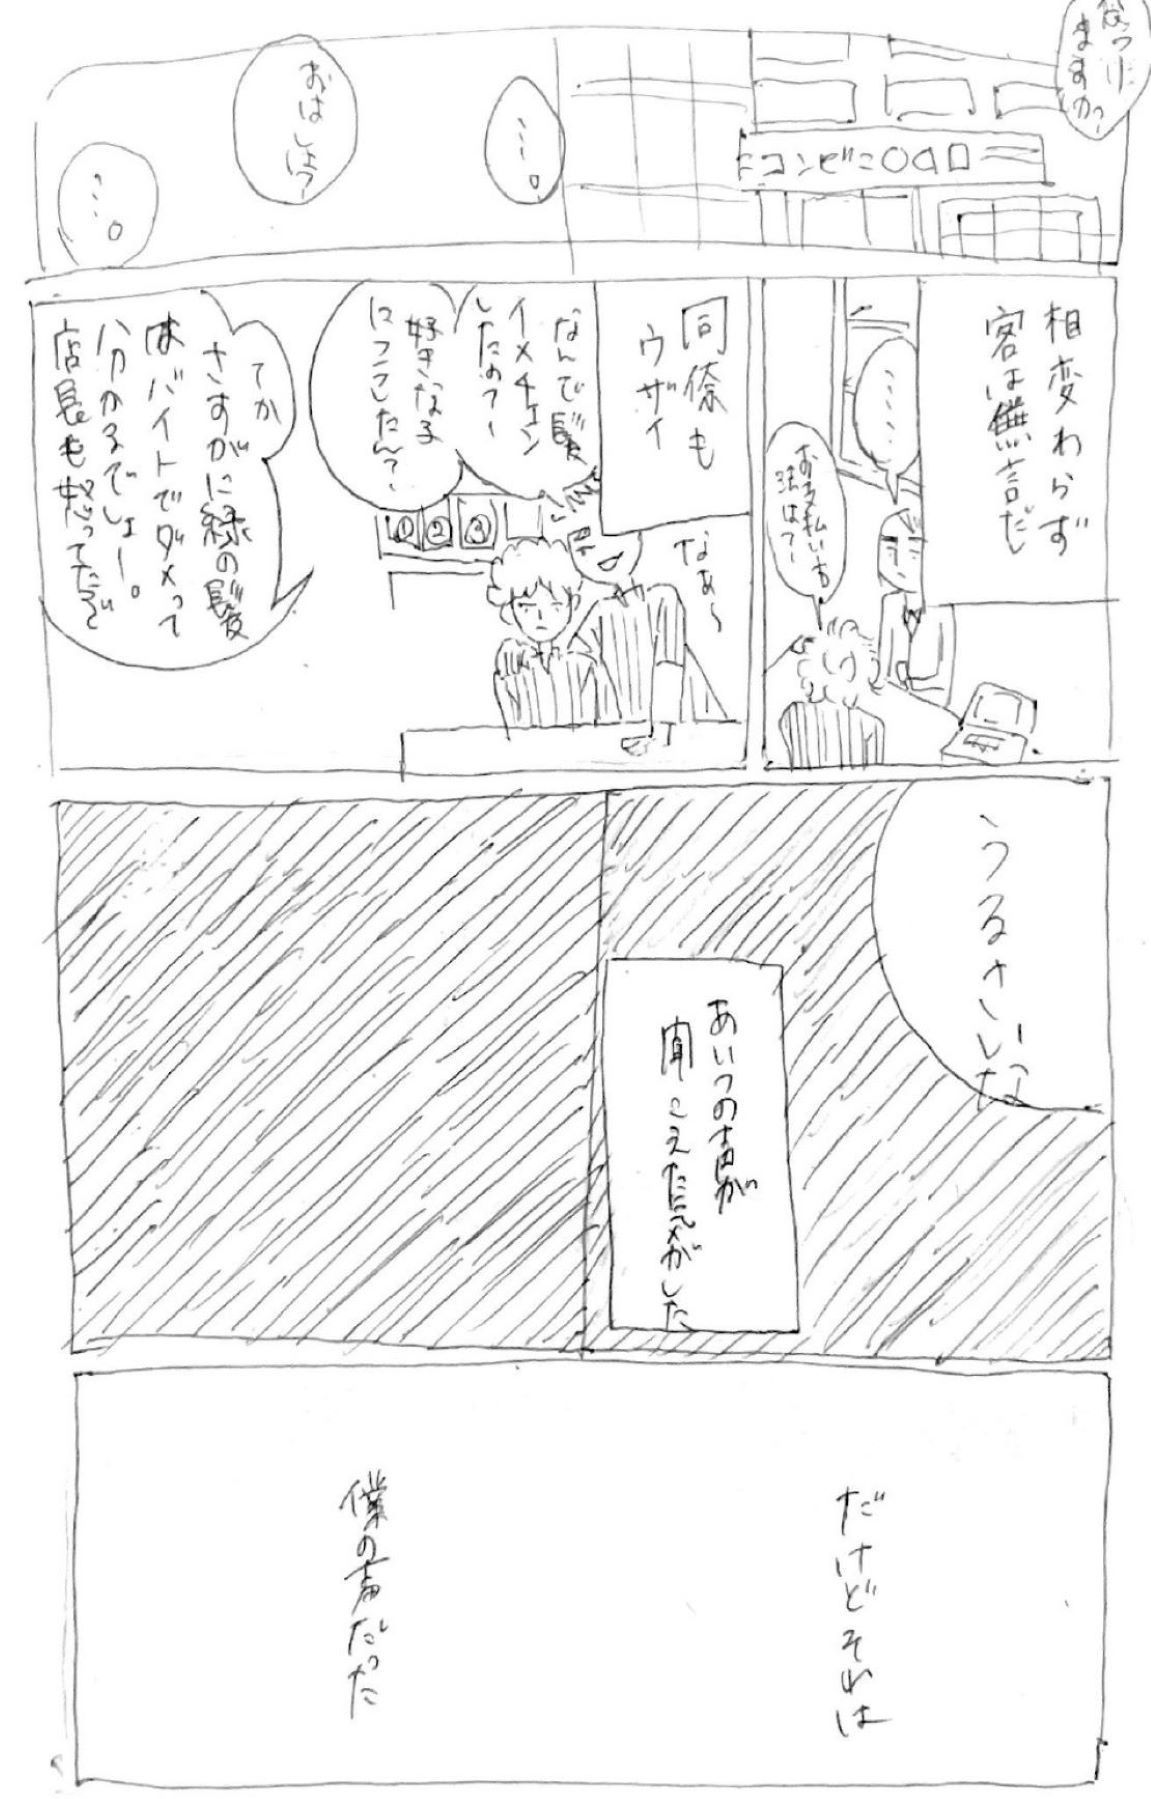 ますか?
コンビニ〇〇ロ
……。
おはしは?
……。
相変わらず
客は無言だ
……
お支払い方
法は?
同僚も
ウザイ
なぁ〜
なんで髪
イメチェン
したの?
好きな子
にフラれたん?
てか
さすがに緑の髪
はバイトでダメって
分かるでしょー。
店長も怒ってたぞ
①②③
うるさいな
あいつの声が
聞こえた気がした
だけどそれは
僕の声だった